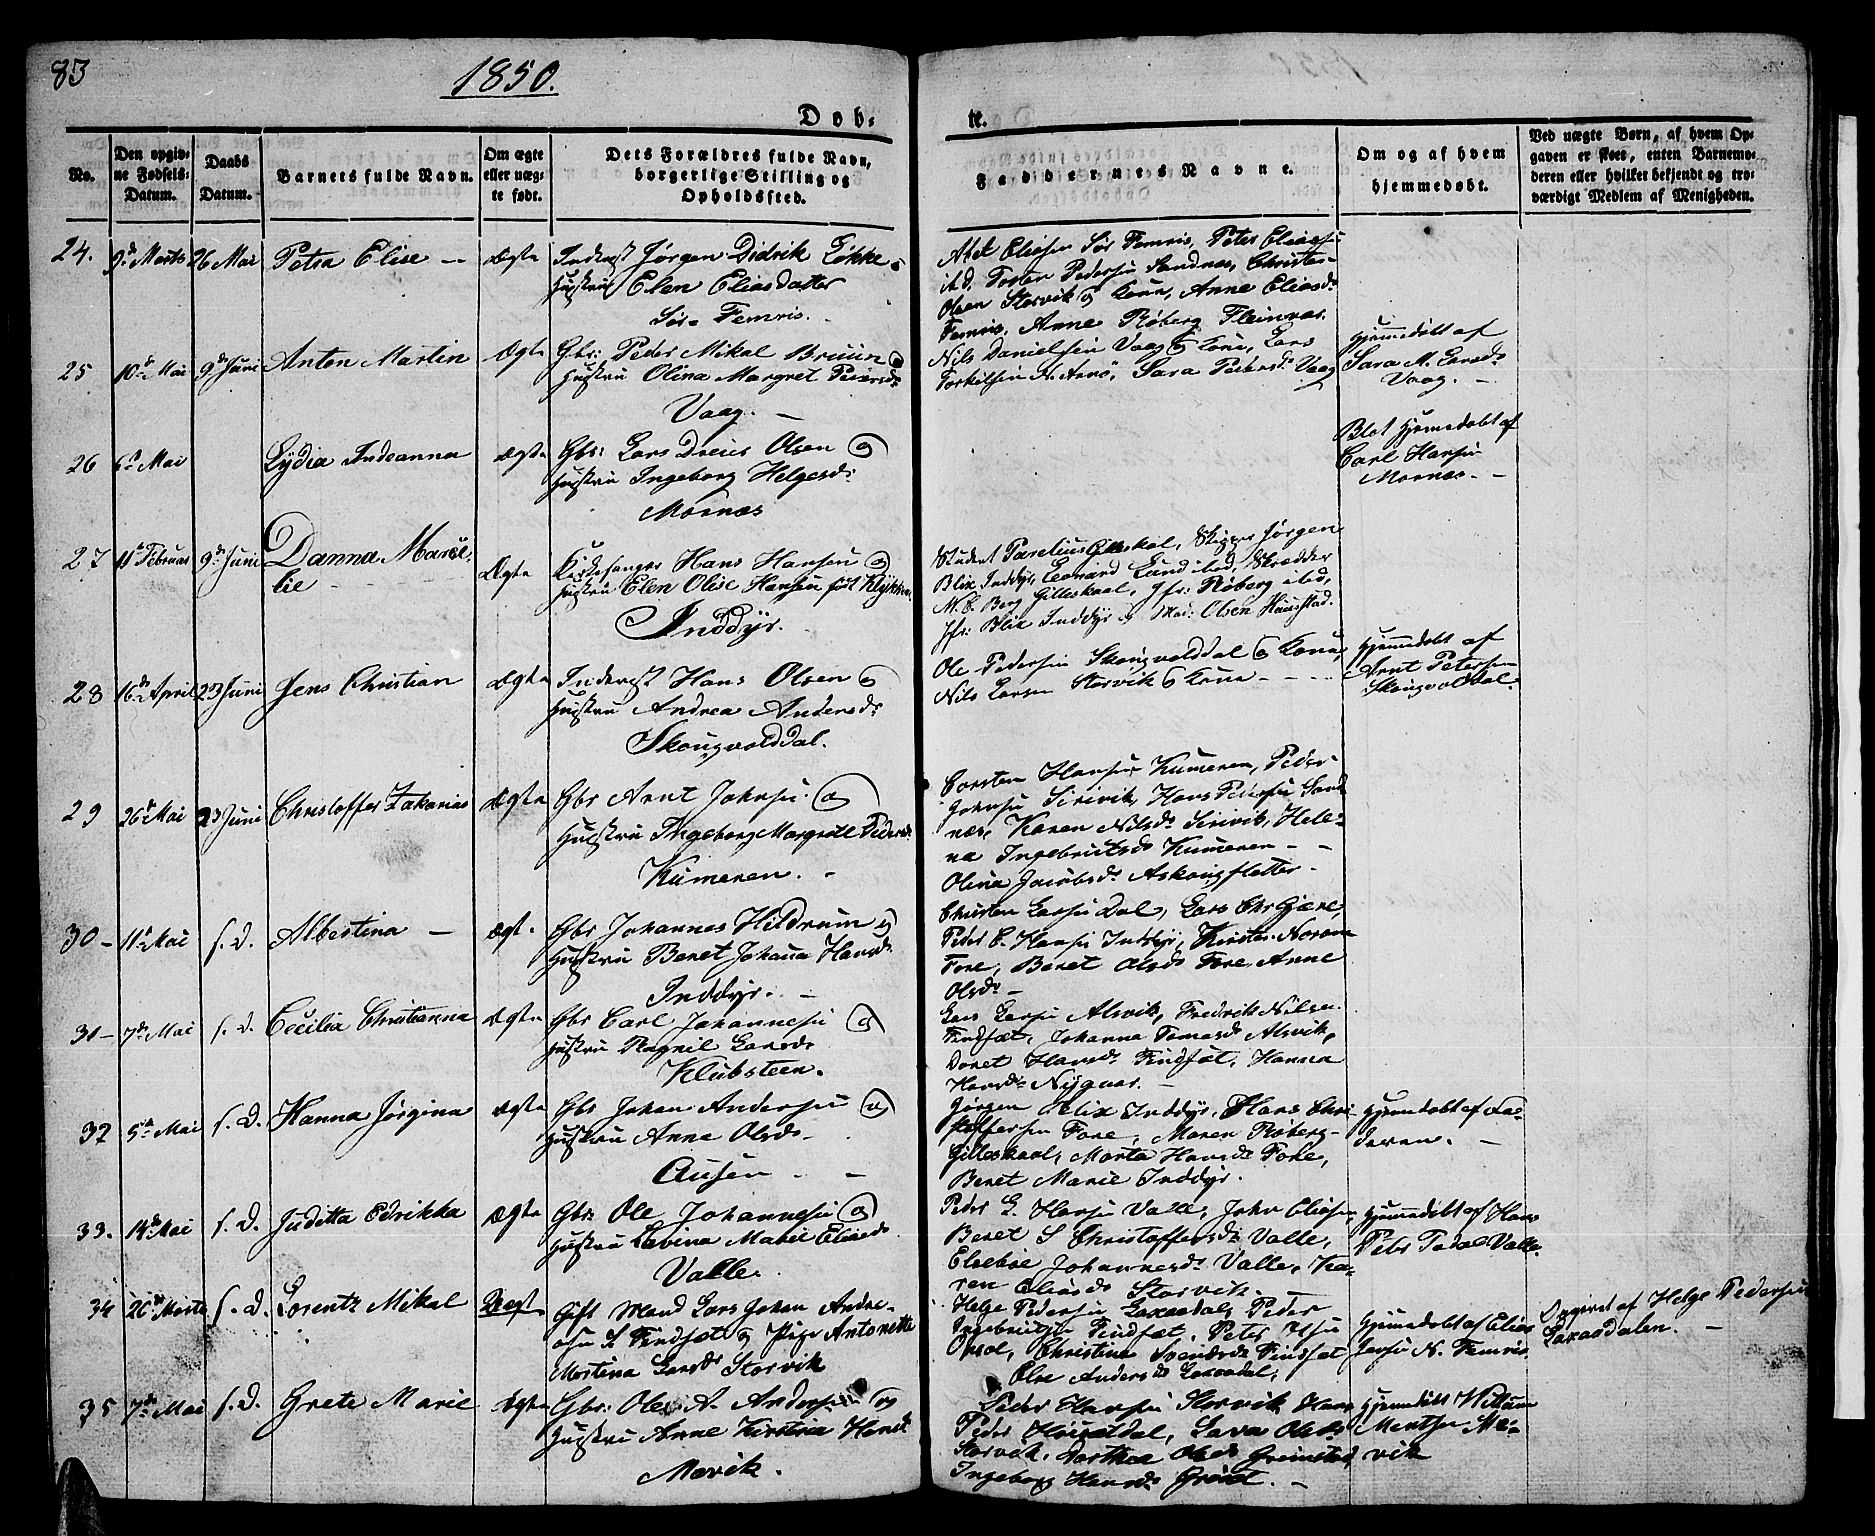 83
1850.
Døb=
te.
No.
Den opgiv-
ne Fødsels-
Datum.
Daabs
Datum.
Barnets fulde Navn.
Om ægte
eller uæg-
te født.
Dets Forældres fulde Navn,
borgerlige Stilling og
Opholdssted.
Faddernes Navne.
Om og af hvem
hjemmedøbt.
Ved uægte Børn, af hvem Op-
gaven er skeet, enten Barnemo-
deren eller hvilket bekjendt og tro-
værdigt Medlem af Menigheden.
24.
9de Marts
26 Mai
Petra Elise —
Ægte
Inderst Jørgen Didrik Løkke
Hustru Elen Eliasdatter
Sør-Femris.
Eliesen Sør Femris, Peter Eliaesen
ibd. Peders Sandnes, Christen
Olsen Storvik og Kone, Anne Eliasd.
Femris, Anne Røberg Fleinvær.
25
10de Mai
9de Juni
Anton Martin
Ægte
Gbr: Peder Mikal Bruun og
Hustru Olina Margret Pedersd.
Vaag. —
Nils Danielsen Vaag og Kone, Lars
Torkilsen N. Arnø, Sara Pedersd. Vaag
Hjemmedøbt af
Sara M. Larsd.
Vaag. —
26
6te Mai
Lydia Indeanna
Ægte
Gbr: Lars Dreius Olsen og
Hustru Ingeborg Helgesd.
Mornæs
Blot hjemmedøbt af
Carl Hansen
Mornæs. —
27
11te Februar
9de Juni
Danna Marie-
lie
Ægte
Kirkesanger Hans Hansen og
Hustru Elen Olise Hansen født Klykken
Inddyr.
Student Parelius Gilleskal, Skipper Jørgen
Blix Inddyr, Leonard Lund ibd, Skrædder
M. C. Berg Gilleskaal, Jfr: Røberg ibd,
Jfr: Blix Inddyr og Mad: Olsen Haustad.
28
16de April
23 Juni
Jens Christian
Ægte
Inderst Hans Olsen og
Hustru Andrea Andersd.
Skougvolddal.
Ole Pedersen Skougvolddal og Kone,
Nils Larsen Storvik og Kone
Hjemmedøbt af
Arnt Petersen
Skougvolddal.
29
26de Mai
23 Juni
Christoffer Zakarias
Ægte
Gbr Arnt Johnsen og
Hustru Ingeborg Margrete Pedersd.
Kumeren. -
Corsten Hansen Kumeren, Peder
Johnsen Sirivik, Hans Pedersen Sand
næs, Karen Nilsd. Sirivik, Hele-
na Ingebrigtsd. Kumeren
Olina Jacobsd. Askougsletter.
30 —
11te Mai
s. D.
Albertina —
Ægt.
Gbr Johannes Hildrum og
Hustru Beret Johana Hansd.
Inddyr. —
Christen Larsen Dal, Lars Chr Gjære,
Peder C. Hansen Inddyr, Kirsten
Fore, Beret Olsd. Fore, Anne
Olsd. —
31 —
7de Mai
s. D.
Cecilia Christianna
Ægte
Gbr Carl Johannesen og
Hustru Ragnil Larsd.
Klubsteen.
Lars Larsen Alsvik, Fredrik Nilsen
Findsæt, Johanna Tomasd. Alsvik,
Doret Hansd. Findsæt, Hanna
Hansd. Nygaar. —
32
5te Mai
s. D.
Hanna Jørgina
Ægte
Gbr Johan Andersen og
Hustru Anne Olsd.
Ausen —
Jørgen Blix Inddyr, Hans Chri-
stoffersen Fore, Maren Røberg
Gilleskaal, Marta Hansd. Fore,
Beret Marie Inddyr.
Hjemmedøbt af Fa-
deren. —
33.
14de Mai
s. D.
Juditta Edrikka
Ægte
Gbr: Ole Johannesen og
Hustru Lavina Marie Eliasd.
Valle.
Peder L. Hansen Valle, John Eliasen,
Beret S Christoffersd. Valle,
Elsebæ Johannesd. Valle, Ka-
ren Eliasd. Storvik. —
Hjemmedøbt af Hans
Peter Valle.
34
26de Marts
s. D.
Lorentz Mikal
Uægt
Gift Mand Lars Johan Andre-
asen Findsæt og Pige Antonette
Martina Larsd. Storvik
Helge Pedersen Laxaadal, Peder
Ingebrigtsen Findsæt, Peter
Christina Findsæt
Else Andersd. Laxaadal,
Hjemmedøbt af Elias
N. Femris.
Opgivet af Helge Pedersen
Laxaadalen. —
35
7de Mai
s. D.
Grete Marie
Ægte
Gbr: Ole A. Andersen og
Hustru Anne Kirstina Hansd.
Mevik.
Peder Hansen Storvik, Hans
Peder Sava Olsd.
Storvik, Dorthea Olsd. Grimstad,
Ingeborg Hansd. —
Hjemmedøbt Willum
Mentsen Me-
vik